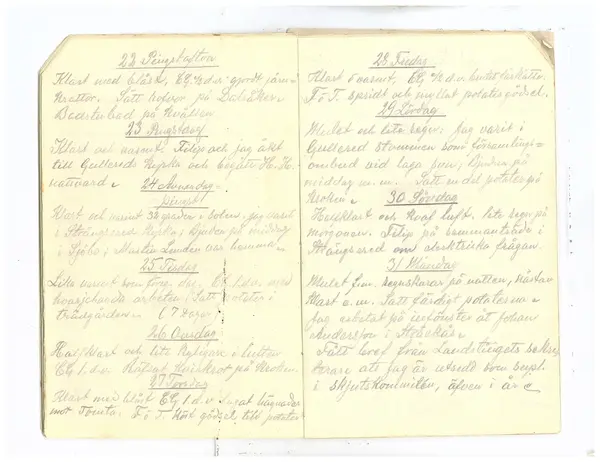 22 Pingstafton
Klart med blåst, EG ½ d.v. gjort järn-
krattor. Satt hafren på Dalåker
Beasterbad på kvällen
23 Pingstdag
Klart och varmt. Filip och jag åkt
till Gullereds kyrka och begått H. H.
nattvard.
24 Annandag
Pingst
Klart och varmt 32 grader i solen, jag varit
i Strängsereds kyrka; Bjuden på middag
i Sjöbo; Martin Linden var hemma
25 Tisdag
Lika varmt som föreg. dag. EG 1 d.v. med
hvarjehanda arbeten; Satt potater i
trädgården (7 kappar)
26 Onsdag
Halfklart och lite kyligare i luften
EG 1 d.v. på Kroken.
27 Torsdag
Klart med blåst EG 1 d.v. lagat hägnader
mot Tomta. F o T. kört gödsel till potater
28 Fredag
Klart o varmt, EG ½ d.v.
F o T. spridt och myllat potatisgödsel.
29 Lördag
Mulet och lite regn; Jag varit i
Gullered stommen som församlings-
ombud vid laga syn; Bjuden på
middag m.m. Satt en del potater på
Kroken
30 Söndag
Halfklart och kval luft, lite regn på
morgonen. Filip på sammanträde i
Strängsered om elektriska frågan.
31 Måndag
Mulet f.m. regnskurar på natten, nästan
klart e.m. Satt färdigt potaterna
Jag arbetat på
Andersson i
Fått bref från Landstingets sekre-
terare att jag är utsedd som supl.
i skjutskommitén, äfven i år